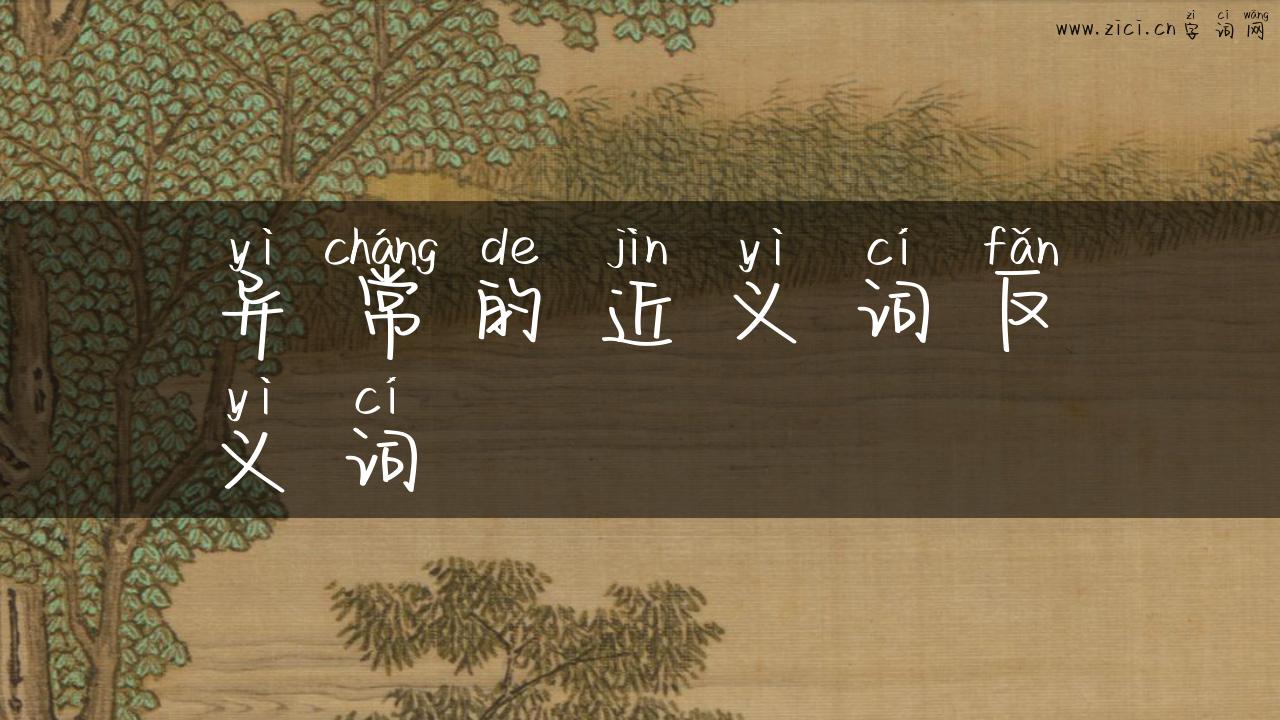 zì cí wǎng
www.zici.cn 字词网
yì cháng de jìn yì cí fǎn
异常的近义词反
yì cí
义词